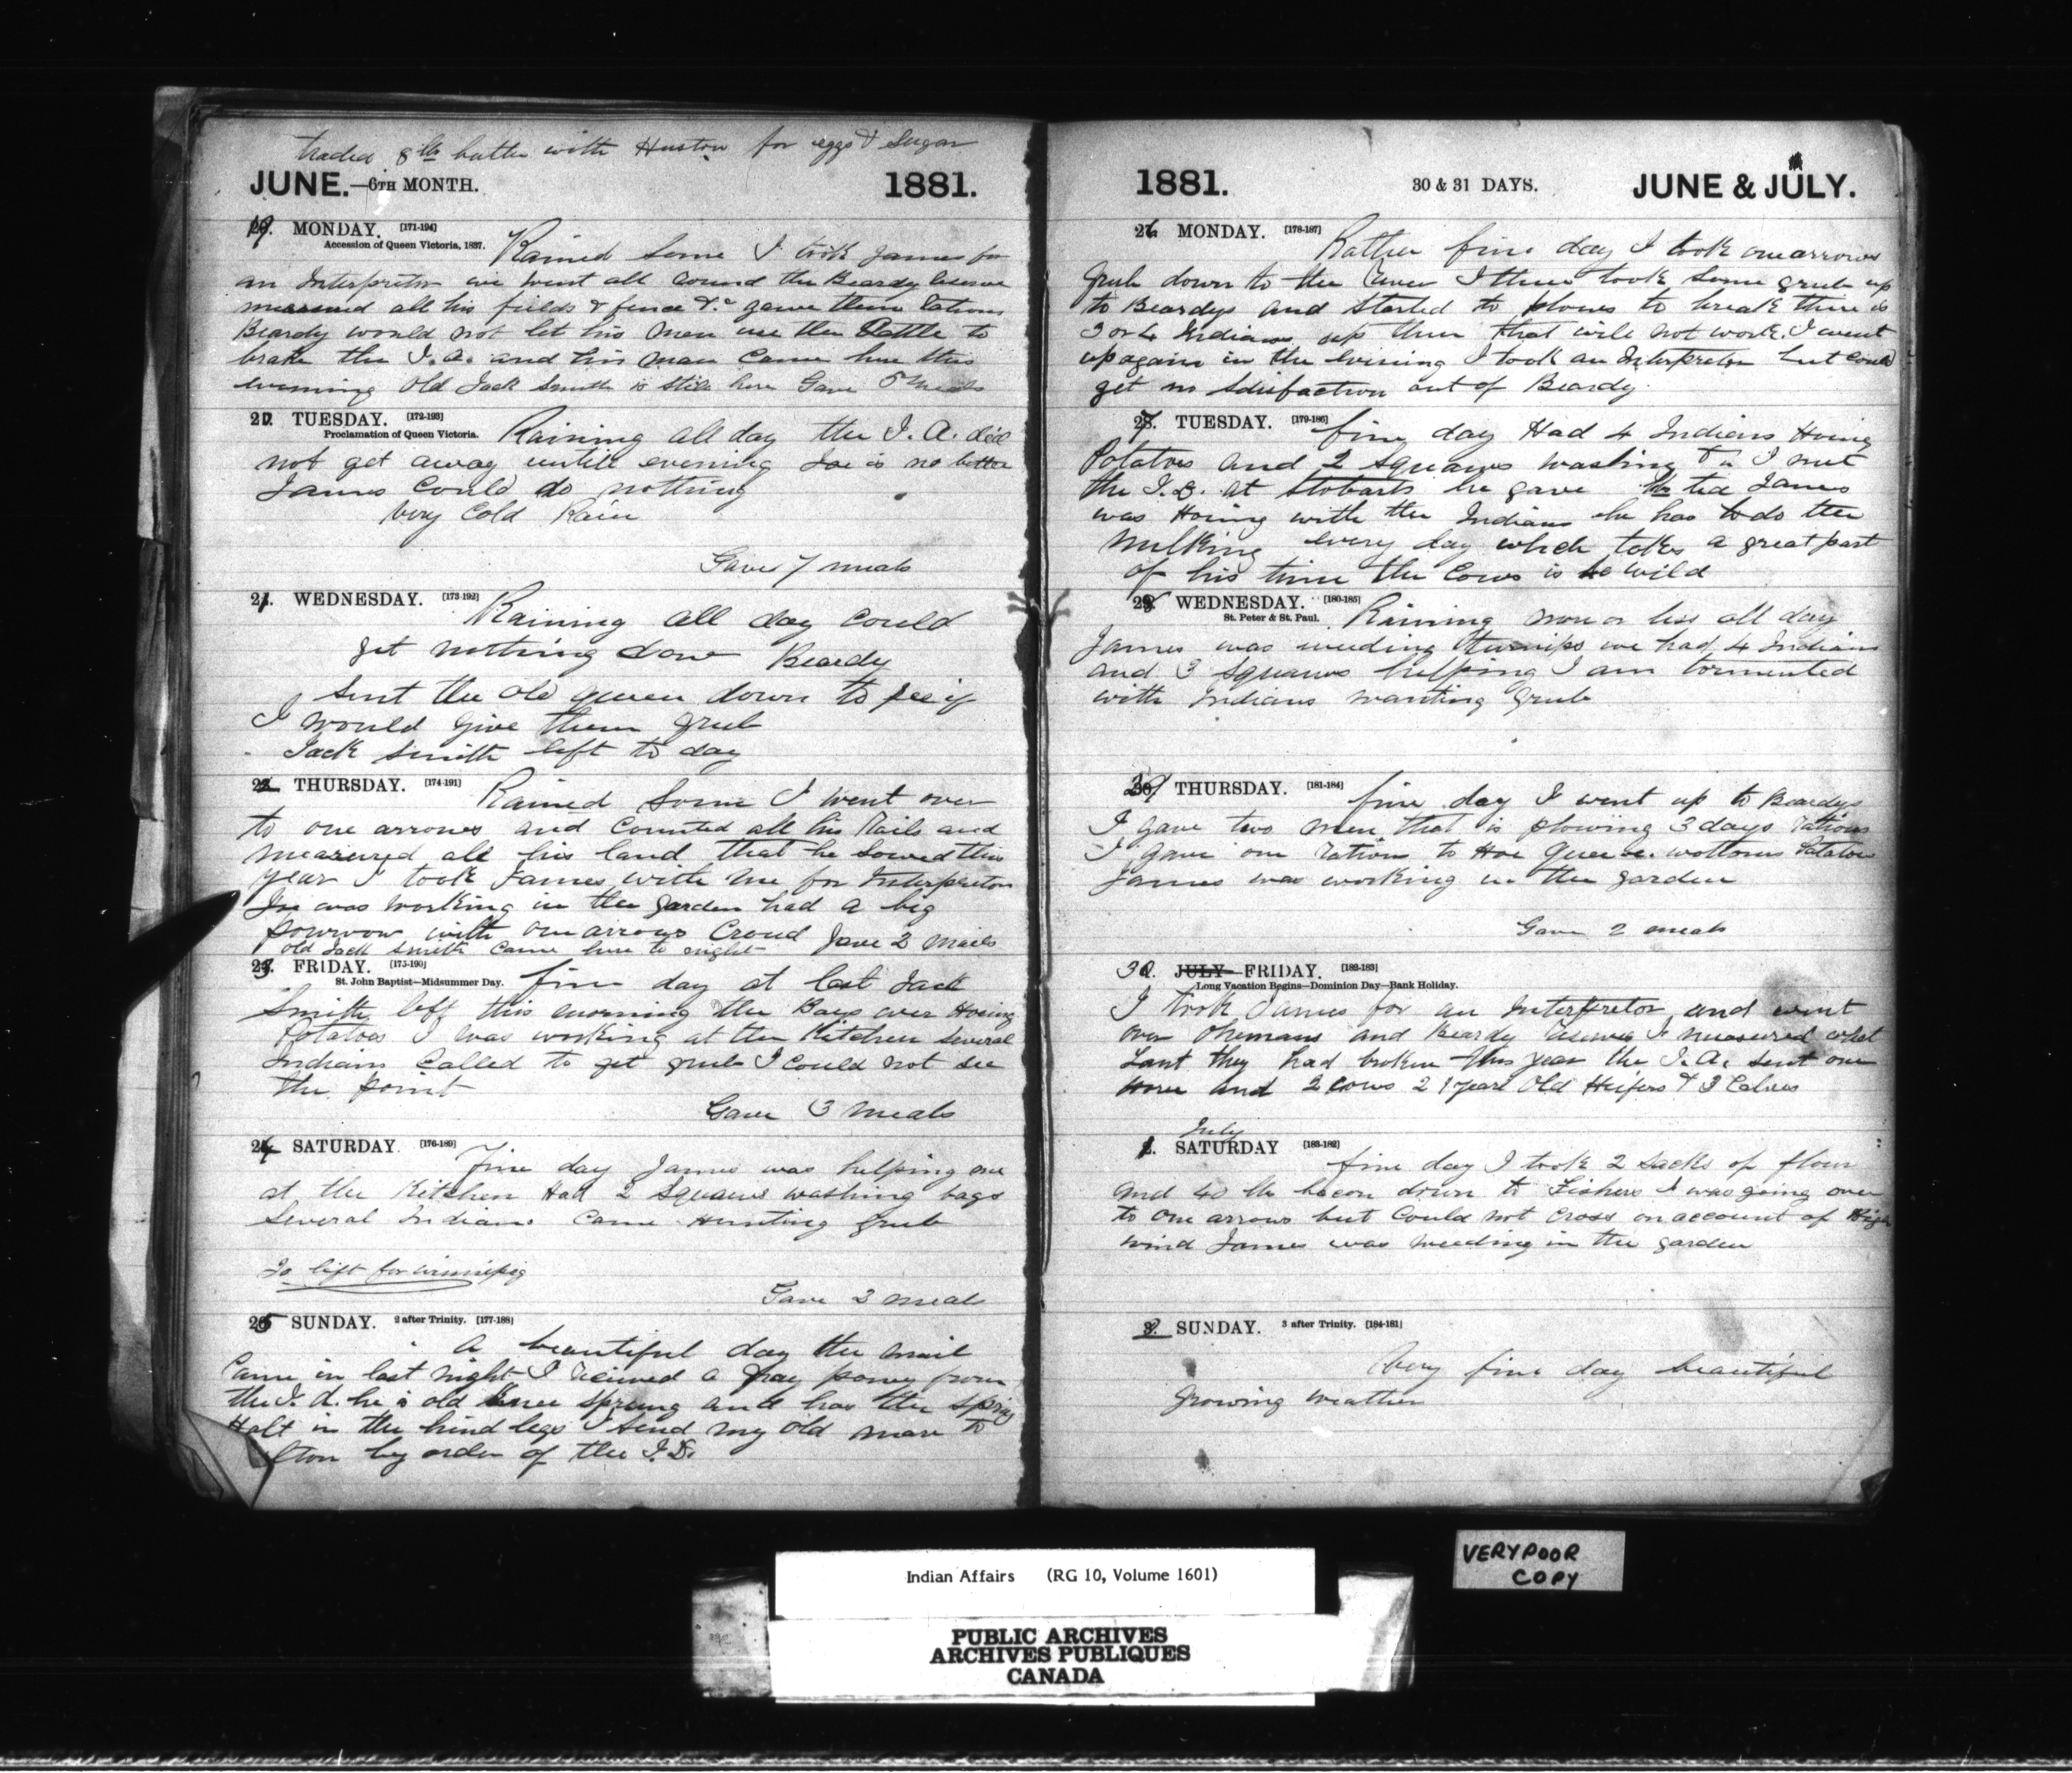 traded 8 lb butter with Huston for eggs & Sugar
JUNE.—6TH MONTH. 1881.
19. MONDAY. [171-194]
Accession of Queen Victoria, 1837.
Rained some I took James for
an Interpretor we went all round the Beardy reserve
measured all his fields & fence &c gave them rations
Beardy would not let his men use the Cattle to
brake the I. A. and his man came here this
evening Old Jack Smith is still here Gave 5 meals
20. TUESDAY. [172-193]
Proclamation of Queen Victoria.
Raining all day the I. A. did
not get away untill evening Joe is no better
James could do nothing
Very Cold Rain
Gave 7 meals
21. WEDNESDAY. [173-192]
Raining all day could
get nothing done Beardy
Sent the old queen down to see if
I would give them grub
Jack Smith left to day
22. THURSDAY. [174-191]
Rained some I went over
to one arrows and counted all his Rails and
measured all his land that he sowed this
year I took James with me for Interpretor
Joe was working in the garden had a big
powwow with one arrows Croud gave 2 meals
old Jack Smith came here to night
23. FRIDAY. [175-190]
St. John Baptist—Midsummer Day.
fine day at last Jack
Smith left this morning the Boys were Hoeing
Potatoes I was working at the Kitchen several
Indians Called to get grub I could not see
the point
Gave 3 meals
24 SATURDAY. [176-189]
Fine day James was helping me
at the Kitchen Had 2 Squaws washing bags
Several Indians came Hunting grub
Jo left for winnipeg
Gave 3 meals
25 SUNDAY. 2 after Trinity. [177-188]
A beautiful day the mail
Came in last night I recieved a gray poney from
the I. A. he is old knee sprung and has the spring
Halt in the hind legs I send my old mare to
by order of the I. D.
1881. 30 & 31 DAYS. JUNE & JULY.
26 MONDAY. [178-187]
Rather fine day I took one arrows
grub down to the river I then took some grub up
to Beardys and started to plows to break there is
3 or 4 Indians up there that will not work. I went
up again in the evening I took an Interpretor but could
get no sdisfaction out of Beardy
27. TUESDAY. [179-186]
fine day Had 4 Indians Hoeing
Potatoes and 2 squaws washing &c I met
the I. D. at Stobarts he gave me tea James
was Hoeing with the Indians he has to do the
milking every day which takes a great part
of his time the Cows is so wild
28. WEDNESDAY. [180-185]
St. Peter & St. Paul.
Raining more or less all day
James was weeding turnips we had 4 Indians
and 3 squaws helping I am tormented
with Indians wanting grub
29 THURSDAY. [181-184]
fine day I went up to Beardys
I gave two men that is plowing 3 days rations
I gave one rations to Hoe potatoes
James was working in the garden
Gave 2 meals
30. JULY— FRIDAY. [182-183]
Long Vacation Begins—Dominion Day—Bank Holiday.
I took James for an Interpretor and went
over and Beardy reserves I measured what
Land they had broken this year the I. A. sent one
horse and 2 cows 2 1 year old Heifers & 3 Calves
July
1. SATURDAY [183-182]
fine day I took 2 sacks of flour
and 40 lb bacon down to Fishers I was going over
to one arrows but could not cross on account of High
wind James was weeding in the garden
2. SUNDAY. 3 after Trinity. [184-181]
Very fine day beautiful
growing weather
Indian Affairs (RG 10, Volume 1601)
PUBLIC ARCHIVES
ARCHIVES PUBLIQUES
CANADA
VERY POOR
COPY